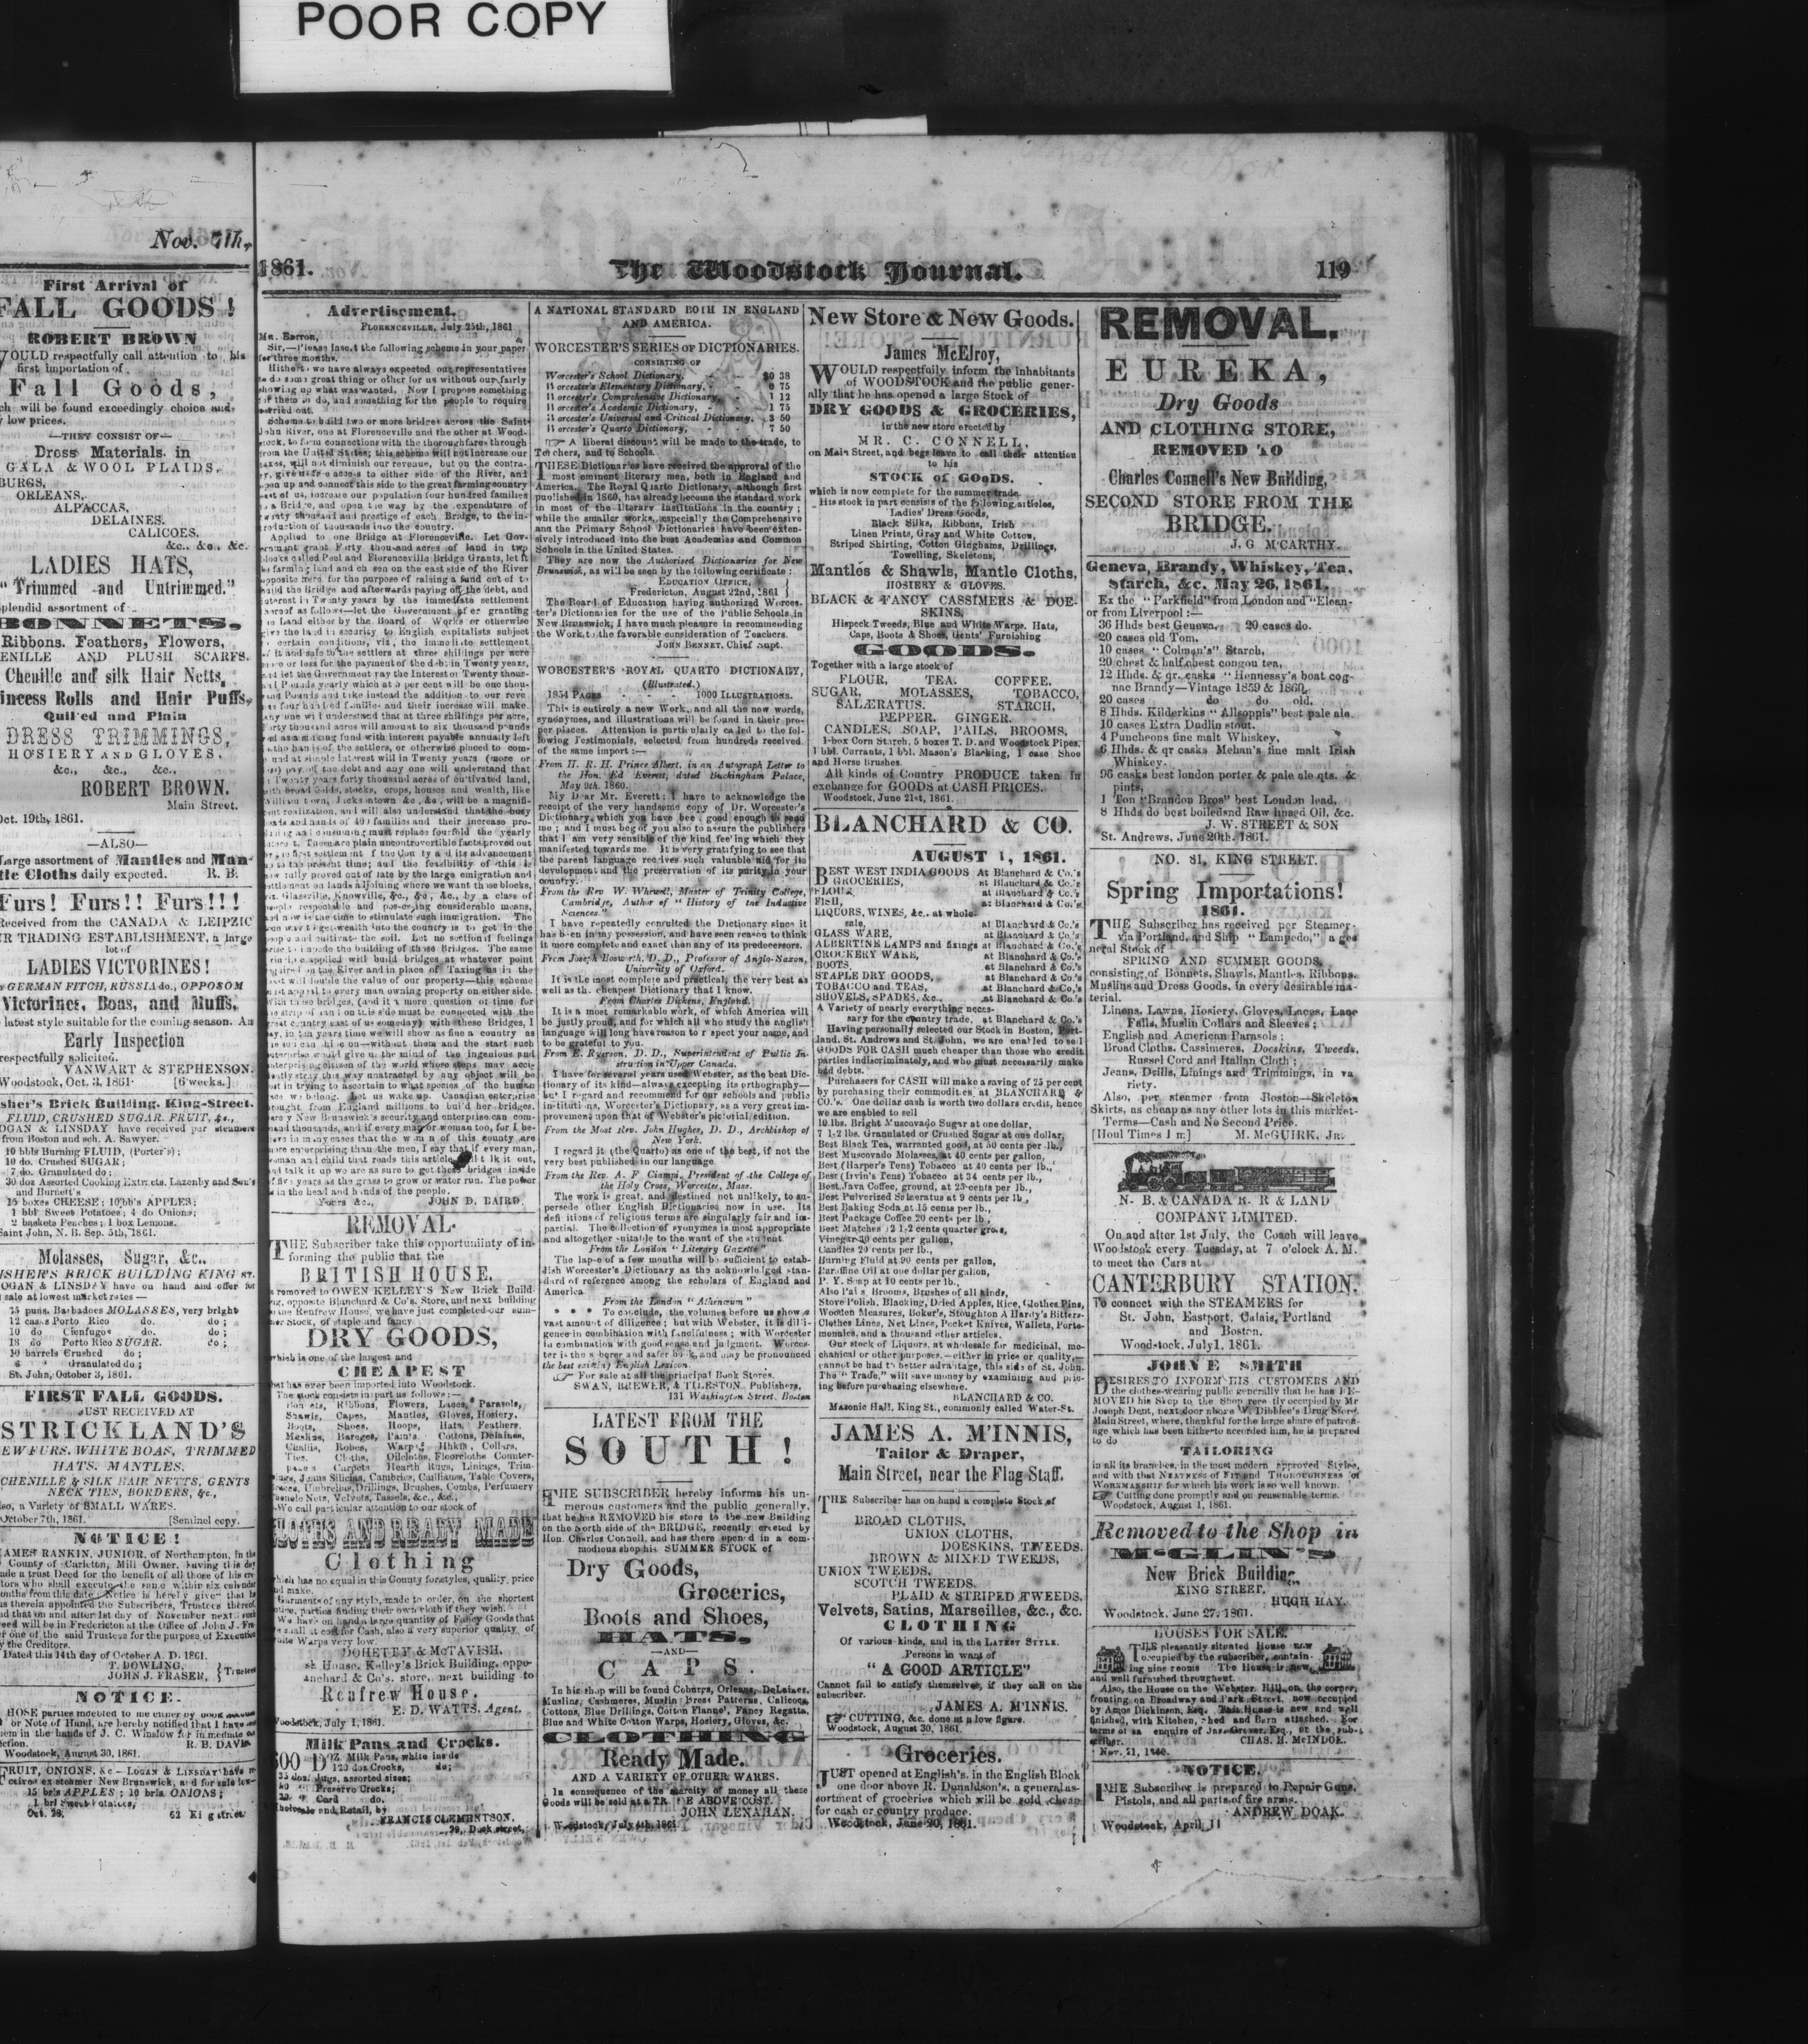 POOR COPY
Nov. 7th,
First Arrival of
FALL GOODS!
ROBERT BROWN
WOULD respectfully call attention to his
first Importation of
Fall Goods,
will be found exceedingly choice and
low prices.
—THEY CONSIST OF—
Dress Materials in
GALA & WOOL PLAIDS,
ORLEANS,
ALPACCAS,
DELAINES,
CALICOES,
&c., &c., &c.
LADIES HATS,
"Trimmed and Untrimmed."
splendid assortment of
BONNETS,
Ribbons, Feathers, Flowers,
CHENILLE AND PLUSH SCARFS.
Chenille and silk Hair Netts,
Princess Rolls and Hair Puffs,
Quilted and Plain
DRESS TRIMMINGS,
HOSIERY AND GLOVES,
&c., &c., &c.,
ROBERT BROWN.
Main Street.
Oct. 19th, 1861.
—ALSO—
Large assortment of Mantles and Man-
tle Cloths daily expected. R. B.
Furs! Furs!! Furs!!!
Received from the CANADA & LEIPZIC
FUR TRADING ESTABLISHMENT, a large
lot of
LADIES VICTORINES!
GERMAN FITCH, RUSSIA do., OPPOSOM
Victorines, Boas, and Muffs,
latest style suitable for the coming season. An
Early Inspection
respectfully solicited.
VANWART & STEPHENSON.
Woodstock, Oct. 3, 1861. [6 weeks.]
Fisher's Brick Building, King-Street.
FLUID, CRUSHED SUGAR, FRUIT, &c.,
LOGAN & LINDSAY have received per steamers
from Boston and sch. A. Sawyer.
10 bbls Burning FLUID, (Porter's);
10 do. Crushed SUGAR;
7 do. Granulated do;
30 doz Assorted Cooking Extracts. Lazenby and Son's
and Burnett's
15 boxes CHEESE; 10 bbls APPLES;
1 bbl Sweet Potatoes; 4 do Onions;
2 baskets Peaches; 1 box Lemons.
Saint John, N. B. Sep. 5th, 1861.
Molasses, Sugar, &c.,
FISHER'S BRICK BUILDING KING ST.
LOGAN & LINSDAY have on hand and offer for
sale at lowest market rates—
75 puns. Barbadoes MOLASSES, very bright
12 casks Porto Rico do. do;
10 do Cienfugos do. do;
18 do Porto Rico SUGAR. do;
30 barrels Crushed do;
6 " Granulated do;
St. John, October 3, 1861.
FIRST FALL GOODS.
JUST RECEIVED AT
STRICKLAND'S
NEW FURS. WHITE BOAS, TRIMMED
HATS. MANTLES.
CHENILLE & SILK HAIR NETTS, GENTS
NECK TIES, BORDERS, &c.,
Also, a Variety of SMALL WARES.
October 7th, 1861. [Sentinel copy.
NOTICE!
JAMES RANKIN, JUNIOR, of Northampton, in the
County of Carleton, Mill Owner, having this day
made a trust Deed for the benefit of all those of his cre-
ditors who shall execute the same within six calendar
months from this date. Notice is hereby given that he
has therein appointed the Subscribers, Trustees thereof,
and that on and after 1st day of November next. such
Deed will be in Fredericton at the Office of John J. Fra-
ser one of the said Trustees for the purpose of Execution
by the Creditors.
Dated this 14th day of October A. D. 1861.
T. DOWLING,
JOHN J. FRASER, } Trustees
NOTICE.
THOSE parties indebted to me either by book account
or Note of Hand, are hereby notified that I have
them in the hands of J. C. Winslow for immediate
R. B. DAVIS
Woodstock, August 30, 1861.
FRUIT, ONIONS, &c—LOGAN & LINDSAY have
ex steamer New Brunswick, and for sale low—
15 brls APPLES; 10 brls ONIONS;
1 brl Sweet Potatoes,
Oct. 28. 62 King street
1861. The Woodstock Journal. 119
Advertisement.
FLORENCEVILLE, July 25th, 1861
MR. Editor,
Sir,—Please insert the following scheme in your paper
for three months.
Hitherto we have always expected our representatives
to do some great thing or other for us without our fairly
showing up what was wanted. Now I propose something
for them to do, and something for the people to require
carried out.
Scheme to build two or more bridges across the Saint
John River, one at Florenceville and the other at Wood-
stock, to form connections with the thoroughfares through
from the United States; this scheme will not increase our
taxes, will not diminish our revenue, but on the contra-
ry, give us free access to either side of the River, and
open up and connect this side to the great farming country
east of us, increase our population four hundred families
to a Bridge, and open the way by the expenditure of
twenty thousand and prestige of each Bridge, to the in-
troduction of thousands into the country.
Applied to one Bridge at Florenceville. Let Gov-
ernment grant Forty thousand acres of land in two
blocks called Peel and Florenceville Bridge Grants, let it
be farming land and chosen on the east side of the River
opposite here, for the purpose of raising a fund out of to
build the Bridge and afterwards paying off the debt, and
interest in Twenty years by the immediate settlement
thereof as follows—let the Government after granting
the Land either by the Board of Works or otherwise
give the land in security to English capitalists subject
to certain conditions, viz, the immediate settlement
of it and sale to the settlers at three shillings per acre
more or less for the payment of the debt in Twenty years,
and let the Government pay the Interest on Twenty thous-
and Pounds yearly which at 5 per cent will be one thou-
sand Pounds and take instead the addition to our reve
nue four hundred families and their increase will make.
Any one will understand that at three shillings per acre,
forty thousand acres will amount to six thousand pounds
and as a sinking fund with interest payable annually left
in the hands of the settlers, or otherwise placed to com-
pound at simple interest will in Twenty years (more or
less) pay off the debt and any one will understand that
in Twenty years forty thousand acres of cultivated land,
with broad fields, stocks, crops, houses and wealth, like
Williamstown, Jacksontown &c., &c., will be a magnifi-
cent realization, and will also understand that the busy
feet and hands of 400 families and their increase pro-
ducing and consuming must replace fourfold the yearly
interest. These are plain uncontrovertible facts proved out
by the first settlement of the County and its advancement
to the present time; and the feasibility of this is
now fully proved out of late by the large emigration and
settlement on lands adjoining where we want those blocks,
viz. Glassville, Knowville, &c., &c., &c., by a class of
people respectable and possessing considerable means,
and now is the time to stimulate such immigration. The
one way to get wealth into the country is to get in the
people and cultivate the soil. Let no sectional feelings
arise to impede the building of those Bridges. The same
principle applied will build bridges at whatever point
required on the River and in place of Taxing us in the
least will double the value of our property—this scheme
must appeal to every man owning property on either side.
With these bridges, (and it is more question of time for
the strip of land on this side must be connected with the
great country east of us someday) with these Bridges, I
say, in ten years time we will show as fine a country as
the sun can shine on—without them and the start such
enterprise would give us the mind of the ingenious and
enterprising citizen of the world whose steps may acci-
dentally stray this way unattracted by any object will be
lost in trying to ascertain to what species of the human
race we belong. Let us wake up. Canadian enterprise
brought from England millions to build her bridges.
Surely New Brunswick's security and enterprise can com-
mand thousands, and if every man or woman too, for I be-
lieve in many cases that the women of this county are
more enterprising than the men, I say that if every man,
woman and child that reads this article will talk it out,
and talk it up we are as sure to get these bridges inside
of five years as the grass to grow or water run. The power
is in the head and hands of the people.
Yours &c., JOHN D. BAIRD.
REMOVAL.
THE Subscriber take this opportuniinty of in-
forming the public that the
BRITISH HOUSE.
is removed to OWEN KELLEY'S New Brick Build-
ing, opposite Blanchard & Co's. Store, and next building
to the Renfrew House, we have just completed our sum-
mer Stock, of staple and fancy
DRY GOODS,
which is one of the largest and
CHEAPEST
that has ever been imported into Woodstock.
The stock consists in part as follows:—
Bonnets, Ribbons, Flowers, Laces, Parasols,
Shawls, Capes, Mantles, Gloves, Hosiery,
Boots, Shoes, Hoops, Hats, Feathers,
Muslins, Bareges, Pants, Cottons, Delaines,
Challis, Robes, Warps, Hhkfs, Collars,
Ties, Cloths, Oilcloths, Floorcloths Counter-
panes Carpets Hearth Rugs, Linings, Trim-
mings, Jeans Silicias, Cambrics, Castlianas, Table Covers,
Braces, Umbrellas, Drillings, Brushes, Combs, Perfumery
Chenele Nets, Velvets, Tassels, &c., &c.,
We call particular attention to our stock of
CLOTHS AND READY MADE
Clothing
which has no equal in this County for styles, quality, price
and make.
Garments of any style, made to order, on the shortest
notice, parties finding their own cloth if they wish.
We have on hand a large quantity of Fancy Goods that
we sell at cost for Cash, also a very superior quality of
White Warps very low.
DOHERTY & McTAVISH.
British House, Kelley's Brick Building, oppo-
site Blanchard & Co's. store, next building to
Renfrew House.
E. D. WATTS, Agent.
Woodstock, July 1, 1861.
Milk Pans and Crocks.
600 DOZ. Milk Pans, white inside
120 dos Crocks, do;
35 doz. Jugs, assorted sizes;
40 " Preserve Crocks;
20 " Card do.
Wholesale and Retail, by
FRANCIS CLEMENTSON,
29, Dock street,
A NATIONAL STANDARD BOTH IN ENGLAND
AND AMERICA.
WORCESTER'S SERIES OF DICTIONARIES.
CONSISTING OF
Worcester's School Dictionary, - - $0 38
Worcester's Elementary Dictionary, - - 0 75
Worcester's Comprehensive Dictionary, - 1 12
Worcester's Academic Dictionary, - - 1 75
Worcester's Universal and Critical Dictionary, 3 50
Worcester's Quarto Dictionary, - - 7 50
☞ A liberal discount will be made to the trade, to
Teachers, and to Schools.
THESE Dictionaries have received the approval of the
most eminent literary men, both in England and
America. The Royal Quarto Dictionary, although first
published in 1860, has already become the standard work
in most of the literary institutions in the country;
while the smaller works, especially the Comprehensive
and the Primary School Dictionaries have been exten-
sively introduced into the best Academies and Common
Schools in the United States.
They are now the Authorised Dictionaries for New
Brunswick, as will be seen by the following certificate:
EDUCATION OFFICE, }
Fredericton, August 22nd, 1861 }
The Board of Education having authorized Worces-
ter's Dictionaries for the use of the Public Schools in
New Brunswick, I have much pleasure in recommending
the Work to the favorable consideration of Teachers.
JOHN BENNET, Chief Supt.
WORCESTER'S ROYAL QUARTO DICTIONARY,
(Illustrated.)
1854 PAGES - 1000 ILLUSTRATIONS.
This is entirely a new Work, and all the new words,
synonymes, and illustrations will be found in their pro-
per places. Attention is particularly called to the fol-
lowing Testimonials, selected from hundreds received
of the same import:—
From H. R. H. Prince Albert, in an Autograph Letter to
the Hon. Ed Everett, dated Buckingham Palace,
May 9th. 1860.
My Dear Mr. Everett: I have to acknowledge the
receipt of the very handsome copy of Dr. Worcester's
Dictionary, which you have been good enough to send
me; and I must beg of you also to assure the publishers
that I am very sensible of the kind feeling which they
manifested towards me. It is very gratifying to see that
the parent language receives such valuable aid for its
development and the preservation of its purity in your
country.
From the Rev W. Whewell, Master of Trinity College,
Cambridge, Author of "History of the Inductive
Sciences."
I have repeatedly consulted the Dictionary since it
has been in my possession, and have seen reason to think
it more complete and exact than any of its predecessors.
From Joseph Bosworth, D. D., Professor of Anglo-Saxon,
University of Oxford.
It is the most complete and practical, the very best as
well as the cheapest Dictionary that I know.
From Charles Dickens, England.
It is a most remarkable work, of which America will
be justly proud, and for which all who study the English
language will long have reason to respect your name, and
to be grateful to you.
From E. Ryerson, D. D., Superintendent of Public In-
struction in Upper Canada.
I have for several years used Webster, as the best Dic-
tionary of its kind—always excepting its orthography—
but I regard and recommend for our schools and public
institutions, Worcester's Dictionary, as a very great im-
provement upon that of Webster's pictorial edition.
From the Most Rev. John Hughes, D. D., Archbishop of
New York.
I regard it (the Quarto) as one of the best, if not the
very best published in our language.
From the Rev. A. F Ciampi, President of the College of
the Holy Cross, Worcester, Mass.
The work is great, and destined not unlikely, to su-
persede other English Dictionaries now in use. Its
definitions of religious terms are singularly fair and im-
partial. The collection of synonymes is most appropriate
and altogether suitable to the want of the student.
From the London "Literary Gazette"
The lapse of a few months will be sufficient to estab-
lish Worcester's Dictionary as the acknowledged stan-
dard of reference among the scholars of England and
America
From the London "Athenæum"
* * * To conclude, the volumes before us show a
vast amount of diligence; but with Webster, it is dili-
gence in combination with fancifulness; with Worcester
in combination with good sense and judgment. Worces-
ter is the soberer and safer book, and may be pronounced
the best existing English Lexicon.
☞ For sale at all the principal Book Stores.
SWAN, BREWER, & TILESTON, Publishers,
131 Washington Street, Boston
LATEST FROM THE
SOUTH!
THE SUBSCRIBER hereby informs his nu-
merous customers and the public generally,
that he has REMOVED his store to the new Building
on the North side of the BRIDGE, recently erected by
Hon. Charles Connell, and has there opened in a com-
modious shop his SUMMER STOCK of
Dry Goods,
Groceries,
Boots and Shoes,
HATS,
—AND—
CAPS.
In his shop will be found Coburgs, Orleans, DeLaines,
Muslins, Cashmeres, Muslin Dress Patterns, Calicoes,
Cottons, Blue Drillings, Cotton Flannel, Fancy Regatta,
Blue and White Cotton Warps, Hosiery, Gloves, &c.
CLOTHING
Ready Made.
AND A VARIETY OF OTHER WARES.
In consequence of the scarcity of money all these
Goods will be sold at a TRIFLE ABOVE COST.
JOHN LENAHAN.
Woodstock, July 4th, 1861
New Store & New Goods.
James McElroy,
WOULD respectfully inform the inhabitants
of WOODSTOCK and the public gener-
ally that he has opened a large Stock of
DRY GOODS & GROCERIES,
in the new store erected by
MR. C. CONNELL,
on Main Street, and begs leave to call their attention
to his
STOCK OF GOODS.
which is now complete for the summer trade.
His stock in part consists of the following articles,
Ladies' Dress Goods,
Black Silks, Ribbons, Irish
Linen Prints, Gray and White Cotton,
Striped Shirting, Cotton Ginghams, Drillings,
Towelling, Skeletons,
Mantles & Shawls, Mantle Cloths,
HOSIERY & GLOVES.
BLACK & FANCY CASSIMERS & DOE-
SKINS,
Hispeck Tweeds, Blue and White Warps. Hats,
Caps, Boots & Shoes, Gents' Furnishing
GOODS.
Together with a large stock of
FLOUR, TEA. COFFEE.
SUGAR, MOLASSES, TOBACCO,
SALÆRATUS. STARCH,
PEPPER, GINGER.
CANDLES, SOAP, PAILS, BROOMS,
1-box Corn Starch, 5 boxes T. D. and Woodstock Pipes,
1 bbl. Currants, 1 bbl. Mason's Blacking, 1 case Shoe
and Horse Brushes.
All kinds of Country PRODUCE taken in
exchange for GOODS at CASH PRICES.
Woodstock, June 21st, 1861.
BLANCHARD & CO.
AUGUST 1, 1861.
BEST WEST INDIA GOODS At Blanchard & Co.'s
GROCERIES, at Blanchard & Co.'s
FLOUR, at Blanchard & Co.'s
FISH, at Blanchard & Co.'s
LIQUORS, WINES, &c. at whole-
sale, at Blanchard & Co.'s
GLASS WARE, at Blanchard & Co.'s
ALBERTINE LAMPS and fixings at Blanchard & Co.'s
CROCKERY WARE, at Blanchard & Co.'s
BOOTS, at Blanchard & Co.'s
STAPLE DRY GOODS, at Blanchard & Co.'s
TOBACCO and TEAS, at Blanchard & Co.'s
SHOVELS, SPADES, &c., at Blanchard & Co.'s
A Variety of nearly everything neces-
sary for the country trade, at Blanchard & Co.'s
Having personally selected our Stock in Boston, Port-
land. St. Andrews and St. John, we are enabled to sell
GOODS FOR CASH much cheaper than those who credit
parties indiscriminately, and who must necessarily make
bad debts.
Purchasers for CASH will make a saving of 25 per cent
by purchasing their commodities at BLANCHARD &
CO.'s. One dollar cash is worth two dollars credit, hence
we are enabled to sell
10 lbs. Bright Muscovado Sugar at one dollar,
7 1-2 lbs. Granulated or Crushed Sugar at one dollar,
Best Black Tea, warranted good, at 50 cents per lb.,
Best Muscovado Molasses, at 40 cents per gallon,
Best (Harper's Tens) Tobacco at 40 cents per lb.,
Best (Irvin's Tens) Tobacco at 34 cents per lb.,
Best Java Coffee, ground, at 25 cents per lb.,
Best Pulverized Salæratus at 9 cents per lb.,
Best Baking Soda at 15 cents per lb.,
Best Package Coffee 20 cents per lb.,
Best Matches 12 1-2 cents quarter gross,
Vinegar 30 cents per gallon,
Candles 20 cents per lb.,
Burning Fluid at 90 cents per gallon,
Paraffine Oil at one dollar per gallon,
P. Y. Soap at 10 cents per lb.,
Also Pails, Brooms, Brushes of all kinds,
Stove Polish, Blacking, Dried Apples, Rice, Clothes Pins,
Wooden Measures, Boker's, Stoughton & Hardy's Bitters,
Clothes Lines, Net Lines, Pocket Knives, Wallets, Porte-
monaies, and a thousand other articles.
Our stock of Liquors, at wholesale for medicinal, me-
chanical or other purposes—either in price or quality,—
cannot be had to better advantage, this side of St. John.
The "Trade," will save money by examining and pric-
ing before purchasing elsewhere.
BLANCHARD & CO.
Masonic Hall, King St., commonly called Water-St.
JAMES A. M'INNIS,
Tailor & Draper,
Main Street, near the Flag Staff.
THE Subscriber has on hand a complete Stock of
BROAD CLOTHS,
UNION CLOTHS,
DOESKINS, TWEEDS,
BROWN & MIXED TWEEDS,
UNION TWEEDS,
SCOTCH TWEEDS,
PLAID & STRIPED TWEEDS,
Velvets, Satins, Marseilles, &c., &c.
CLOTHING
Of various kinds, and in the LATEST STYLE.
Persons in want of
"A GOOD ARTICLE"
Cannot fail to satisfy themselves, if they call on the
subscriber.
JAMES A. M'INNIS.
☞ CUTTING, &c. done at a low figure.
Woodstock, August 30, 1861.
Groceries.
JUST opened at English's, in the English Block
one door above R. Donaldson's, a general as-
sortment of groceries which will be sold cheap
for cash or country produce.
Woodstock, June 20, 1861.
REMOVAL.
EUREKA,
Dry Goods
AND CLOTHING STORE,
REMOVED TO
Charles Connell's New Building,
SECOND STORE FROM THE
BRIDGE.
J. G McCARTHY.
Geneva, Brandy, Whiskey, Tea,
Starch, &c. May 26, 1861.
Ex the "Parkfield" from London and "Elean-
or from Liverpool:—
36 Hhds best Geneva. 20 cases do.
20 cases old Tom.
10 cases "Colman's" Starch,
20 chest & half chest congou tea,
12 Hhds. & qr. casks "Hennessy's boat cog-
nac Brandy—Vintage 1859 & 1860,
20 cases do do old.
8 Hhds. Kilderkins "Allsoppis" best pale ale
10 cases Extra Dudlin stout.
4 Puncheons fine malt Whiskey,
6 Hhds. & qr casks Mehan's fine malt Irish
Whiskey.
96 casks best london porter & pale ale qts. &
pints,
1 Ton "Brandon Bros" best London lead,
8 Hhds do best boiled and Raw linsed Oil, &c.
J. W. STREET & SON
St. Andrews, June 20th. 1861.
NO. 81, KING STREET.
Spring Importations!
1861.
THE Subscriber has received per Steamer
via Portland, and Ship "Lampedo," a gen
neral Stock of
SPRING AND SUMMER GOODS,
consisting of Bonnets, Shawls, Mantles, Ribbons,
Muslins and Dress Goods, in every desirable ma-
terial.
Linens, Lawns, Hosiery, Gloves, Laces, Lace
Falls, Muslin Collars and Sleeves;
English and American Parasols;
Broad Cloths, Cassimeres, Doeskins, Tweeds,
Russel Cord and Italian Cloth;
Jeans, Drills, Linings and Trimmings, in va
riety.
Also, per steamer from Boston—Skeleton
Skirts, as cheap as any other lots in this market.
Terms—Cash and No Second Price.
[Houl Times 1 m] M. McGUIRK, JR.
N. B. & CANADA R. R & LAND
COMPANY LIMITED.
On and after 1st July, the Coach will leave
Woodstock every Tuesday, at 7 o'clock A. M.
to meet the Cars at
CANTERBURY STATION.
To connect with the STEAMERS for
St. John, Eastport, Calais, Portland
and Boston.
Woodstock, July 1, 1861.
JOHN E SMITH
DESIRES TO INFORM HIS CUSTOMERS AND
the clothes-wearing public generally that he has RE-
MOVED his Shop to the Shop recently occupied by Mr
Joseph Dent, next door above W. Dibblee's Drug Store,
Main Street, where, thankful for the large share of patron-
age which has been hitherto accorded him, he is prepared
to do
TAILORING
in all its branches, in the most modern approved Styles,
and with that NEATNESS OF FIT and THOROUGHNESS OF
WORKMANSHIP for which his work is so well known.
☞ Cutting done promptly and on reasonable terms.
Woodstock, August 1, 1861.
Removed to the Shop in
McGLIN'S
New Brick Building,
KING STREET.
HUGH HAY.
Woodstock, June 27, 1861.
HOUSES FOR SALE.
THE pleasantly situated House now
occupied by the subscriber, contain-
ing nine rooms The House is new,
and well furnished throughout.
Also, the House on the Webster Hill, on the corner,
fronting on Broadway and Park Street, now occupied
by Amos Dickinson, Esq. This House is new and well
finished, with Kitchen, Shed and Barn attached. For
terms of sale enquire of Jas. Grover, Esq., or the sub-
scriber. CHAS. H. McINDOE.
Nov. 21, 1860.
NOTICE.
THE Subscriber is prepared to Repair Guns,
Pistols, and all parts of fire arms.
ANDREW DOAK.
Woodstock, April 11